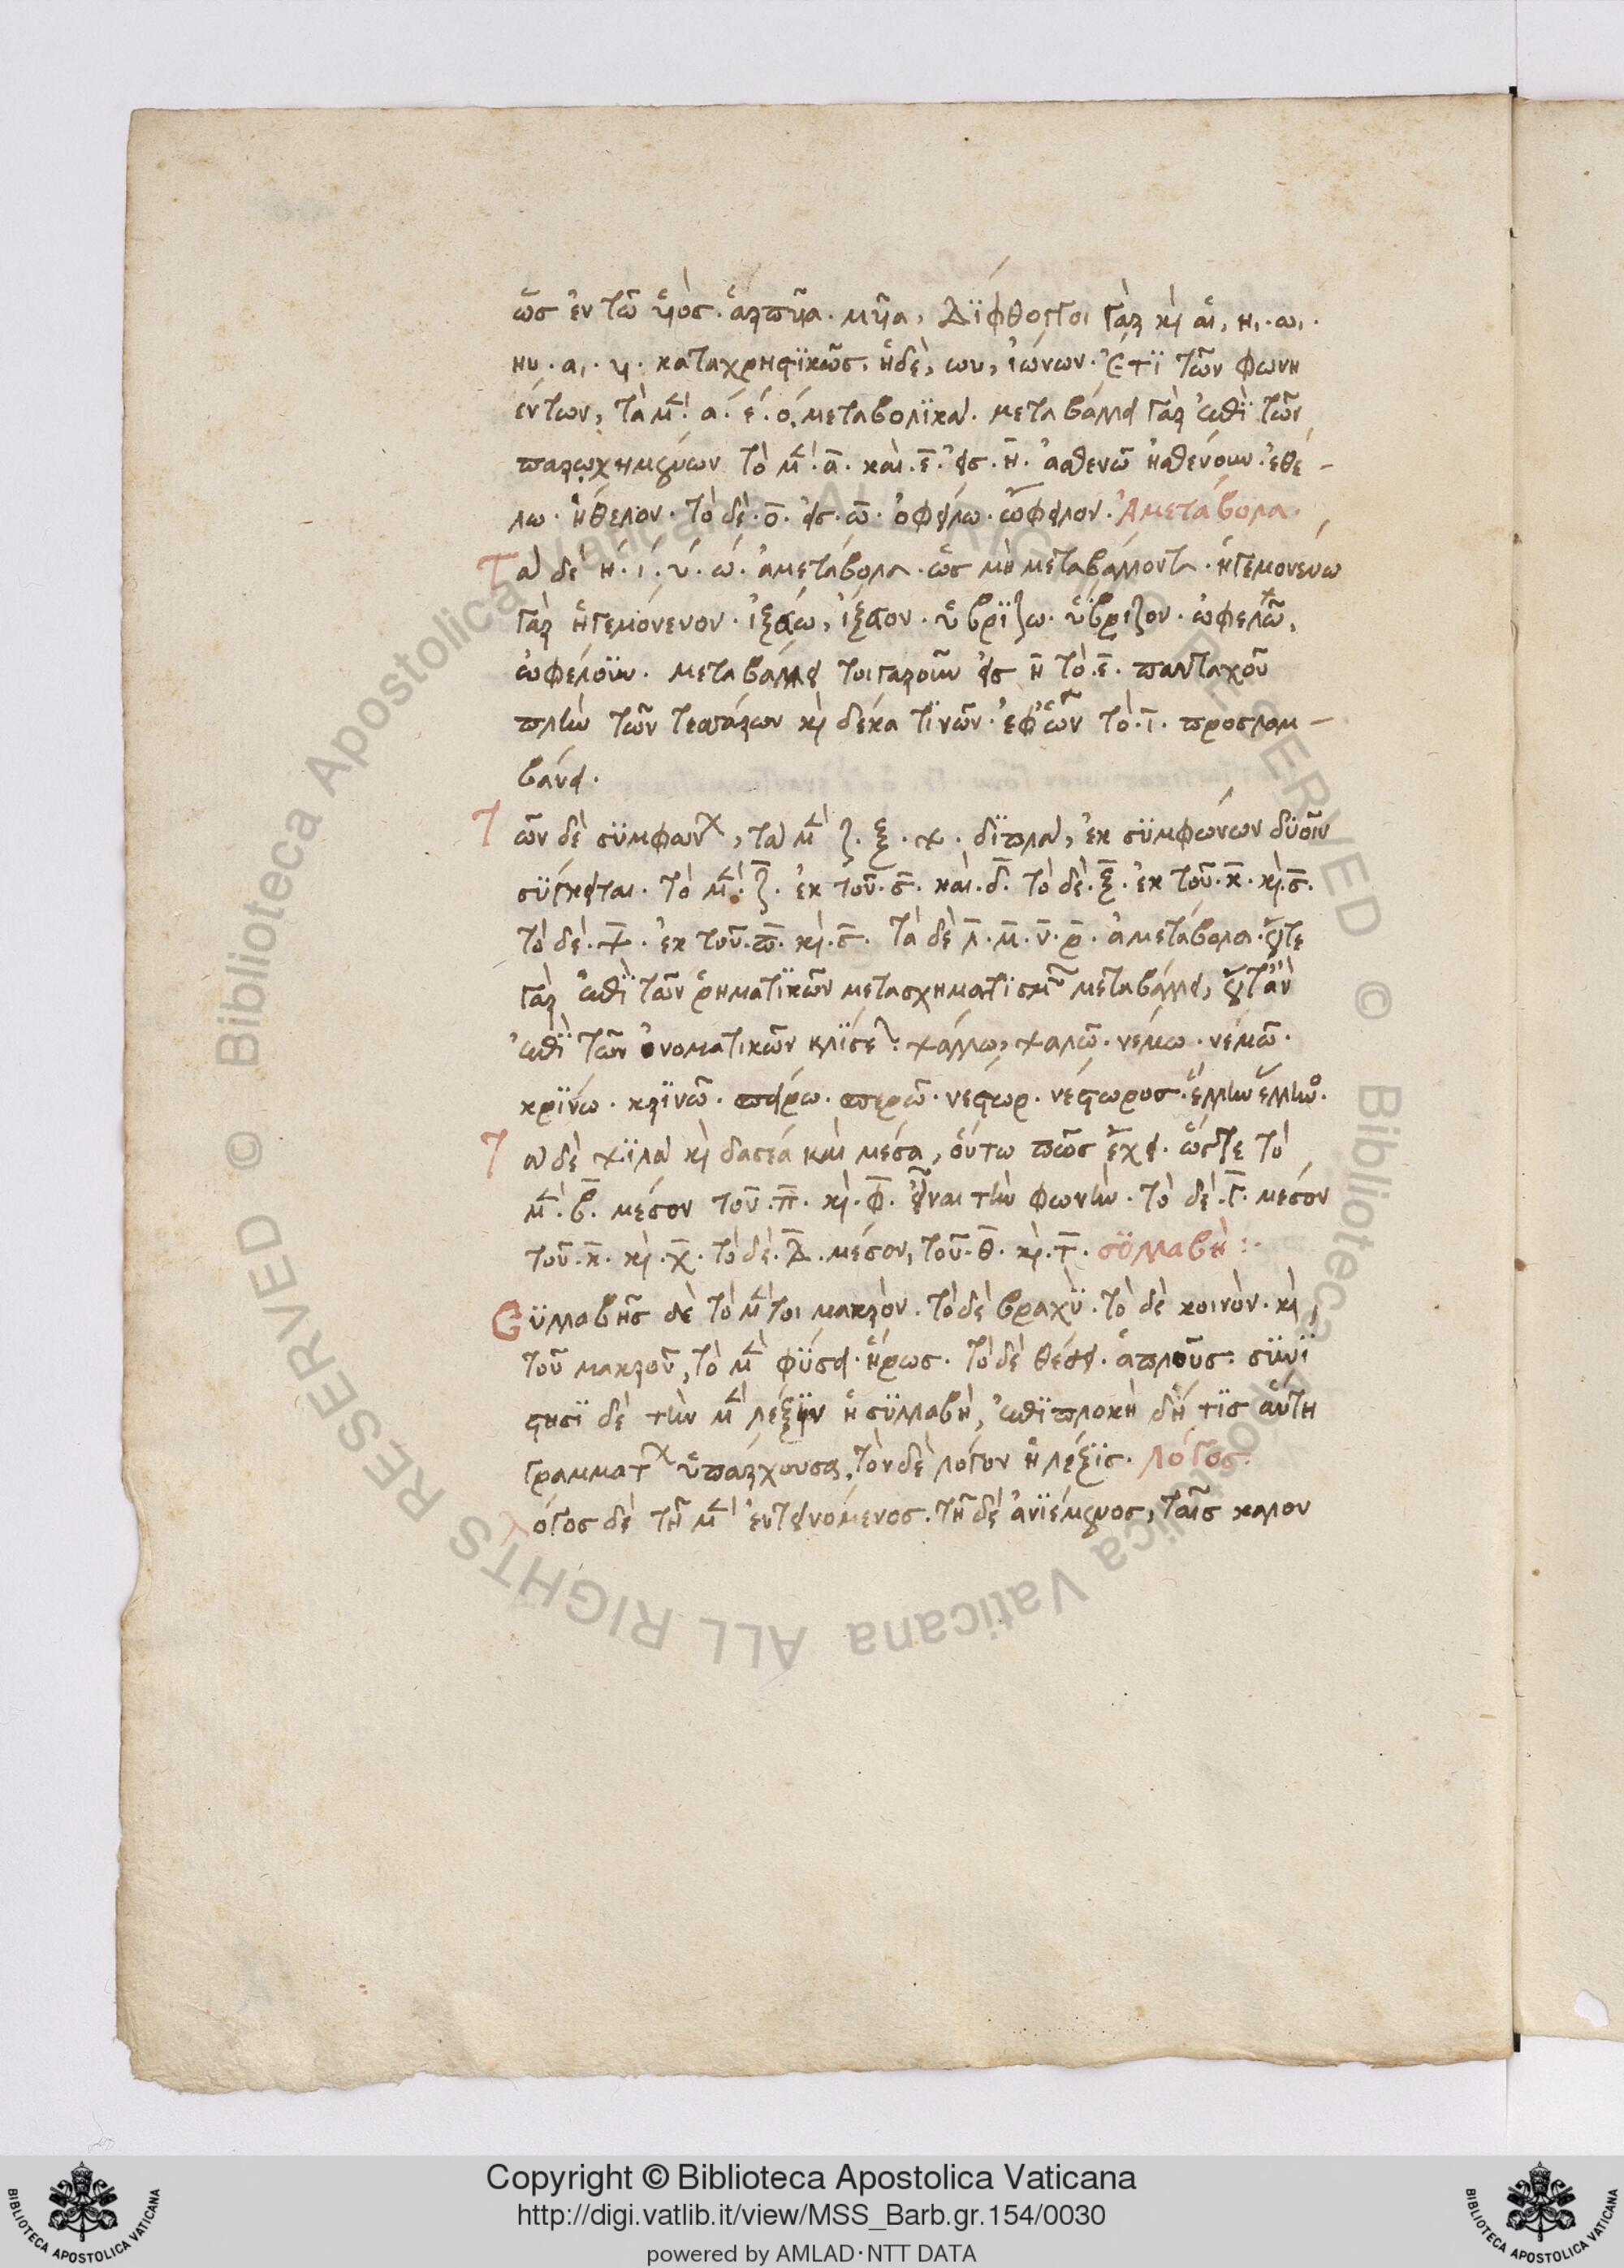 ὡς ἐν τῶ υἱὸς. ἅρπυια. μυῖα, Δΐφθογγοι γὰρ κὶ αἱ, ηι. ωι.
ηυ. αι. υι. καταχρηστϊκῶς. ἡδὲ, ωυ, ἰώνων. Ἔτϊ τῶν φωνη
έντων, τὰ μὲν. α. ε. ο, μεταβολϊκα. μεταβάλλει γὰρ ἐπὶ τῶν
παρωχημένων τὸ μὲν. α. καὶ. ε. εἰς. η. ἀσθενῶ ἠσθένουν. ἐθέ-
λω. ἤθελον. τὸ δὲ. ο. εἰς. ω. ὀφείλω. ὤφειλον. Ἀμετάβολα.
Τὰ δὲ η. ι. υ. ω. ἀμετάβολα. ὡς μὴ μεταβάλλοντα. ἡγεμονεύω
γὰρ ἡγεμόνευον. ἰξεύω, ἴξευον. ὑβρΐζω. ὕβριζον. ὠφελῶ,
ὠφέλουν. μεταβάλλει τοιγαροῦν εἰς η τὸ. ε. πανταχοῦ
πλὴν τῶν τεσσάρων κὶ δέκα τϊνῶν. ἐφ' ὧν τὸ. ι. προσλαμ-
βάνει.
Τῶν δὲ σϋμφων, τὰ μὲν ζ. ξ. ψ. δϊπλᾶ, ἐκ σϋμφώνων δϋοῖν
σϋγκειται. τὸ μὲν. ζ. ἐκ τοῦ. ς. καὶ. δ. τὸ δὲ. ξ. ἐκ τοῦ. κ. κὶ. ς.
τὸ δὲ. ψ. ἐκ τοῦ. π. κὶ. ς. τὰ δὲ λ. μ. ν. ρ. ἀμετάβολα. οὔτε
γὰρ ἐπὶ τῶν ῥηματϊκῶν μετασχηματϊσμῶν μεταβάλλει, οὔτ' ἂν
ἐπὶ τῶν ὀνοματικῶν κλϊσε. ψάλλω, ψαλῶ. νέμω. νεμῶ.
κρϊνω. κρϊνῶ. σπείρω. σπερῶ. νέστωρ. νέστωρος. ἕλλην ἕλληνος.
Τὰ δὲ ψϊλὰ κὶ δασέα καὶ μέσα, οὕτω πῶς ἔχει. ὥστε τὸ
μὲν. β. μέσον τοῦ. π. κὶ. φ. εἶναι τὴν φωνὴν. τὸ δὲ. γ. μέσον
τοῦ. κ. κὶ. χ. τὸ δὲ. δ. μέσον, τοῦ. θ. κὶ. τ. σϋλλαβὴ :.
Σϋλλαβῆς δὲ τὸ μέντοι μακρὸν. τὸ δὲ βραχὺ. τὸ δὲ κοινὸν. κὶ,
τοῦ μακροῦ, τὸ μὲν φϋσει. ἥρως. τὸ δὲ θέσει. ἁπλοῦς. σϋνϊ
στησϊ δὲ τὴν μὲν λέξϊν ἡ σϋλλαβὴ, ἐπϊπλοκὴ δή τϊς αὕτη
γραμματ ὑπάρχουσα, τὸν δὲ λόγον ἡ λέξϊς. λόγος.
Λόγος δὲ τῆ μὲν ἐντεινόμενος. τῆ δὲ ἀνϊέμενος, ταῖς καλον